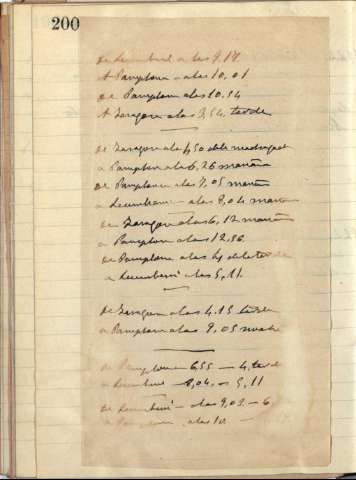 200
de Lecumberri a las 9,17
A Pamplona - a las 10,01
de Pamplona a las 10,54
A Zaragoza a las 3,54 tarde
de Zaragoza a las 4,50 de la madrugada
a Pamplona a las 6,26 mañana
de Pamplona a las 7,05 mañana
a Lecumberri - a las 8,04 mañana
de Zaragoza a las 6,12 mañana
a Pamplona a las 12,36
de Pamplona a las 4 de la tarde
a Lecumberri a las 5,11
de Zaragoza a las 4,15 tarde
a Pamplona a las 9,05 noche
de Pamplona 6,55 — 4, tarde
a Lecumberri 8,04, — 5,11
de Lecumberri - a las 9,03 - 6
a Pamplona a las 10